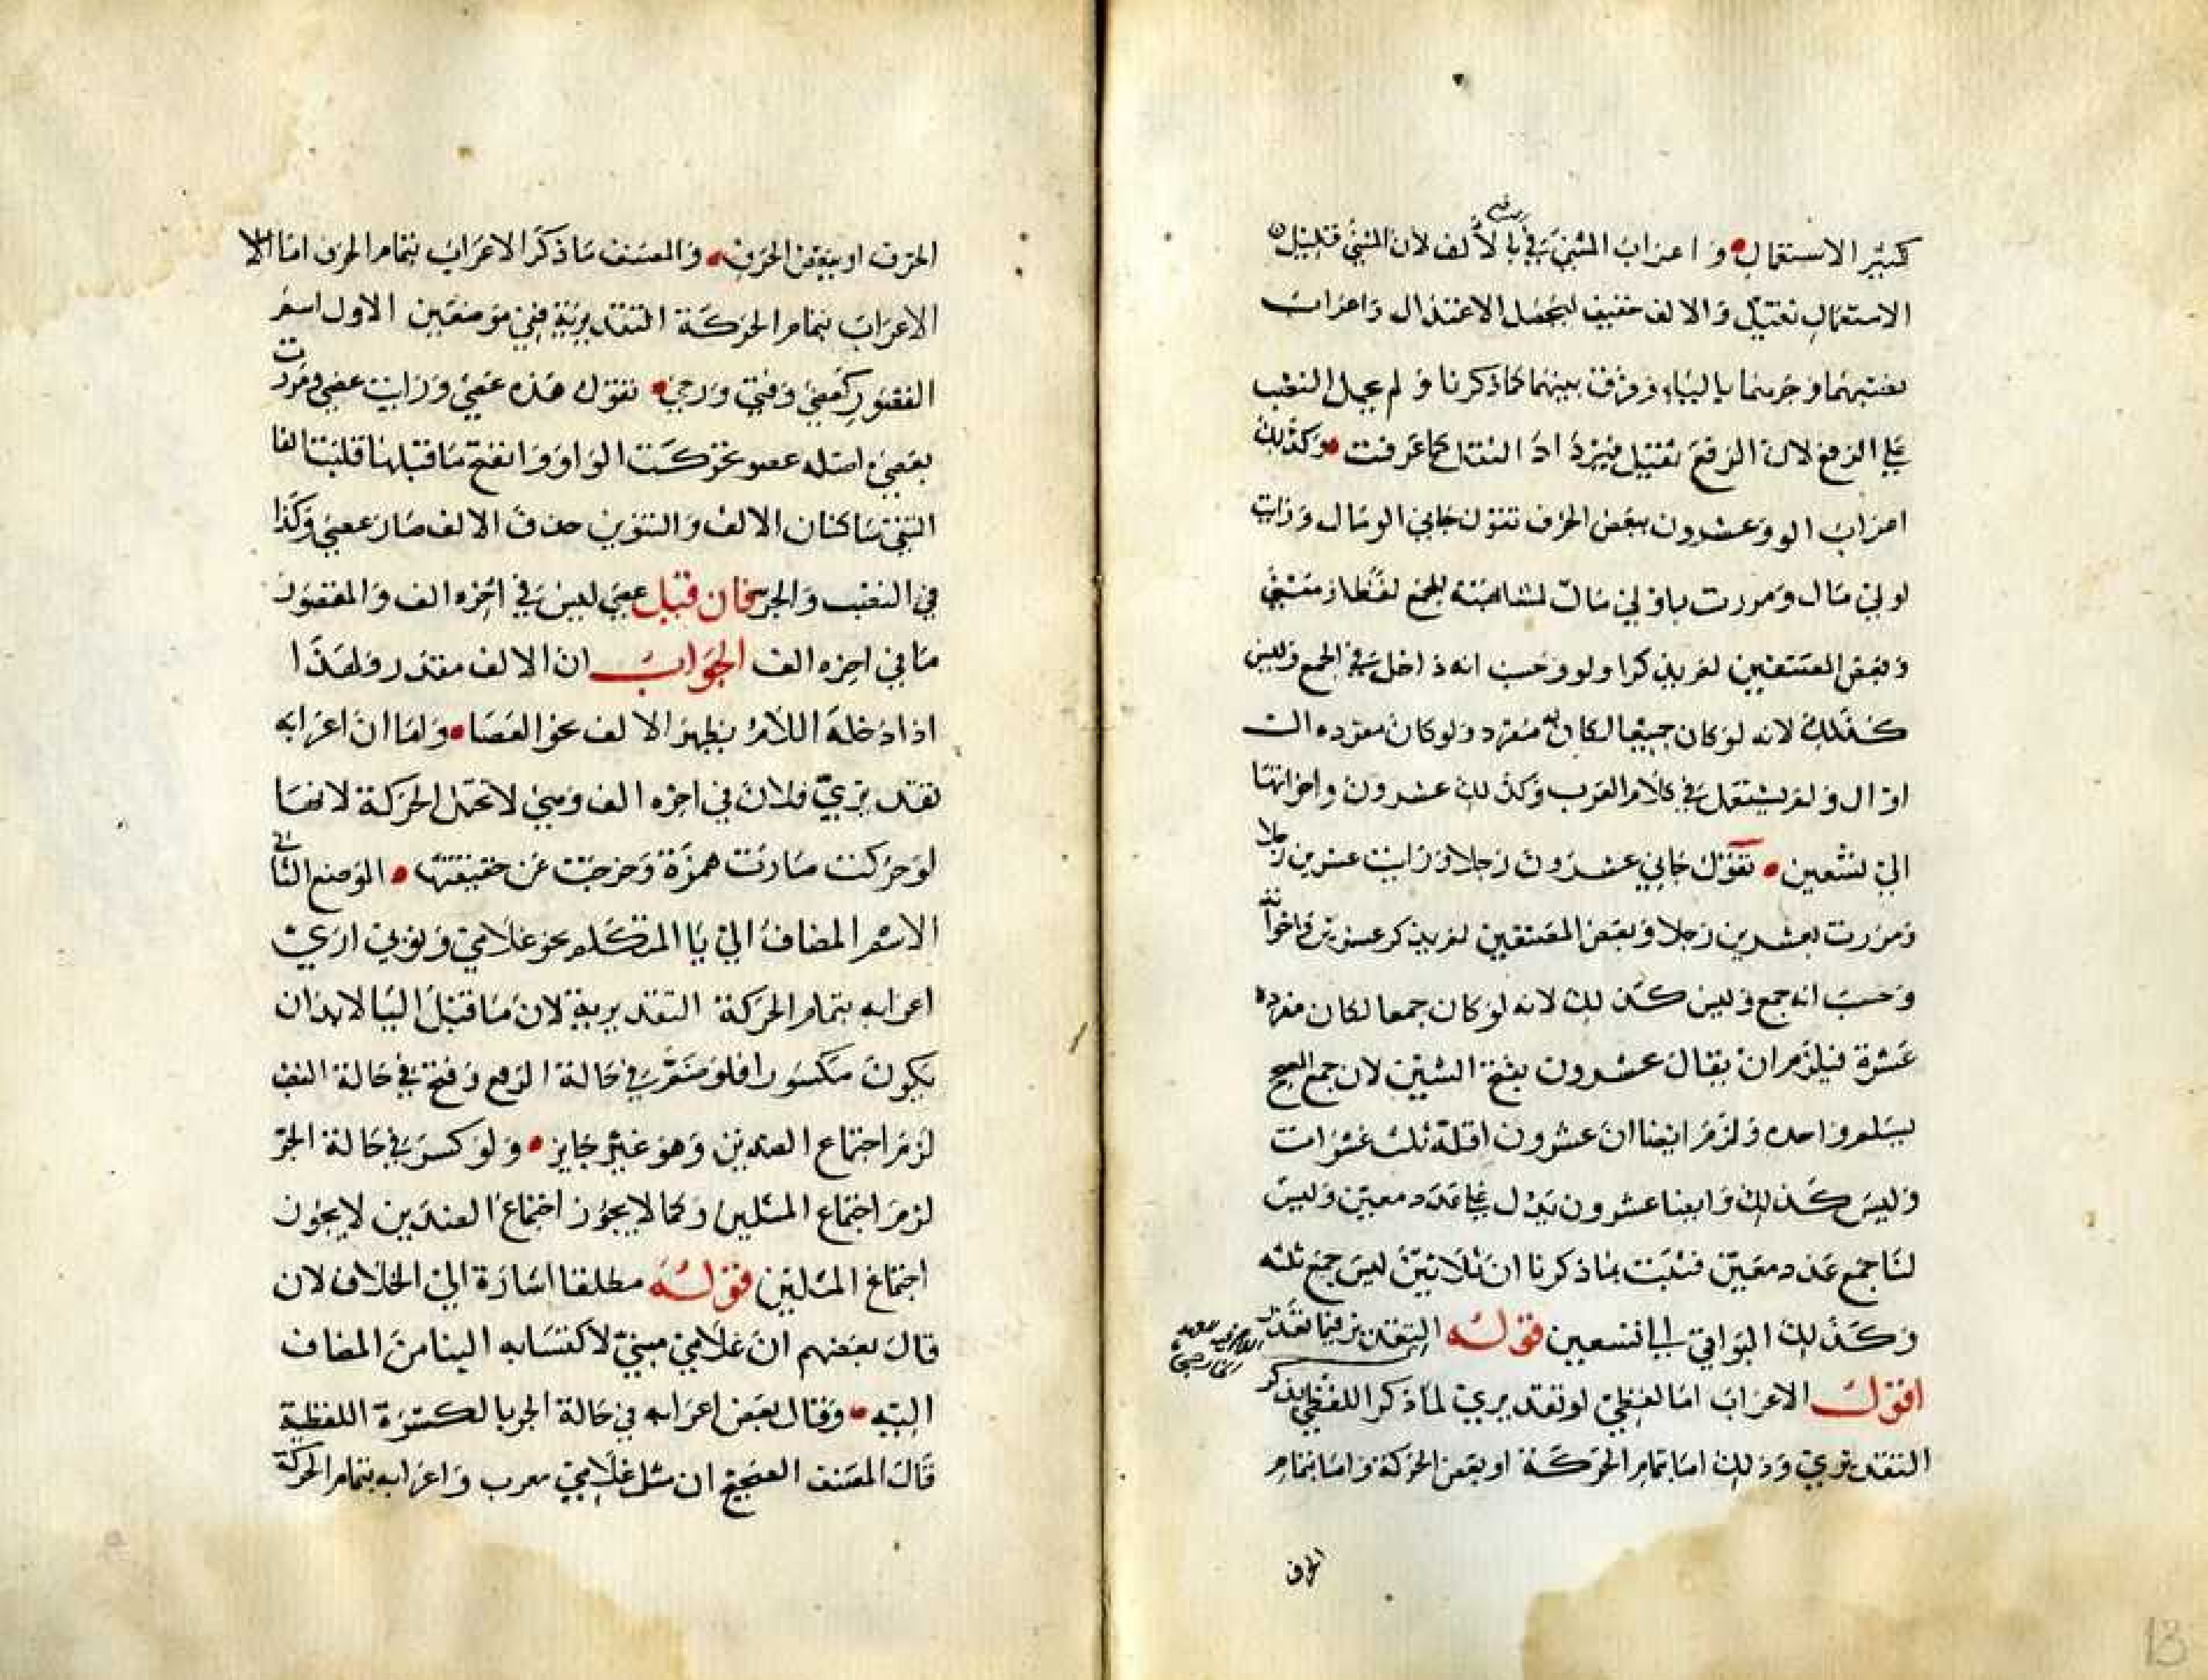 كثير الاستعمال و اعراب المثنى في رفعه بالألف لان المثنى قليل
الاستعمال ثقيل والالف خفيف ليحصل الاعتدال واعراب
نصبهما وجرهما بالياء وفرق بينهما كما ذكرنا ولم يحمل النصب
علي الرفع لان الرفع ثقيل فيزداد الثقل كما عرفت وكذلك
اعراب الو وعشرون ببعض الحرف تقول جاني الو مال ورايت
لولي مال ومررت باولي مال لمشابهته للجمع لفظا ومعني
وبعض المصنفين لم يذكرا ولو وحسب انه داخل في الجمع وليس
كذلك لانه لو كان جمعا لكان له مفرد ولو كان مفرده ال
او ال ولم يستعمل في كلام العرب وكذلك عشرون واخواتها
الي تسعين تقول جاني عشرون رجلا ورايت عشرين رجلا
ومررت بعشرين رجلا وبعض المصنفين لم يذكر عشرين واخواته
وحسب انه جمع وليس كذلك لانه لو كان جمعا لكان مفرده
عشرة فيلزم ان يقال عشرون بفتح الشين لان جمع الصحيح
يسلم واحده ولزم ايضا ان عشرون اقله ثلث عشرات
وليس كذلك وايضا عشرون يدل علي عدد معين وليس
لنا جمع عدد معين فثبت بما ذكرنا ان ثلاثين ليس جمع ثلثه
وكذلك البواقي الي تسعين قوله التقدير فيما تعذر
اقول الاعراب اما لفظي او تقديري لما ذكر اللفظي يذكر
التقديري وذلك اما بتمام الحركة او بعض الحركة واما بتمام
الحرف
الحرف او ببعض الحرف والمصنف ما ذكر الاعراب بتمام الحرف اما
الاعراب بتمام الحركة التقديرية ففي موضعين الاول اسم
المقصور كعصي وفتي ورحي تقول هذه عصي ورايت عصي ومررت
بعصي اصله عصو تحركت الواو وانفتح ما قبلها قلبت الفا
التقي ساكنان الالف والتنوين حذف الالف صار عصي وكذا
في النصب والجر فان قيل عصي ليس في اخره الف والمقصور
ما في اخره الف الجواب ان الالف مقدر ولهذا
اذا دخله اللام يظهر الالف نحو العصا واما ان اعرابه
تقديري فلان في اخره الف وهي لا تحمل الحركة لانها
لو حركت صارت همزة وخرجت عن حقيقتها الموضع الثاني
الاسم المضاف الي يا المتكلم نحو غلامي وثوبي اري
اعرابه بتمام الحركة التقديرية لان ما قبل اليا لابد ان
يكون مكسورا فلو ضم في حالة الرفع وفتح في حالة النصب
لزم اجتماع الضدين وهو غير جايز ولو كسر في حالة الجر
لزم اجتماع المثلين وكما لا يجوز اجتماع الضدين لا يجوز
اجتماع المثلين قوله مطلقا اشارة الي الخلاف لان
قال بعضهم ان غلامي مبني لاكتسابه البنا من المضاف
اليه وقال بعض اعرابه في حالة الجر بالكسرة اللفظية
قال المصنف الصحيح ان مثل غلامي معرب واعرابه بتمام الحركة
13